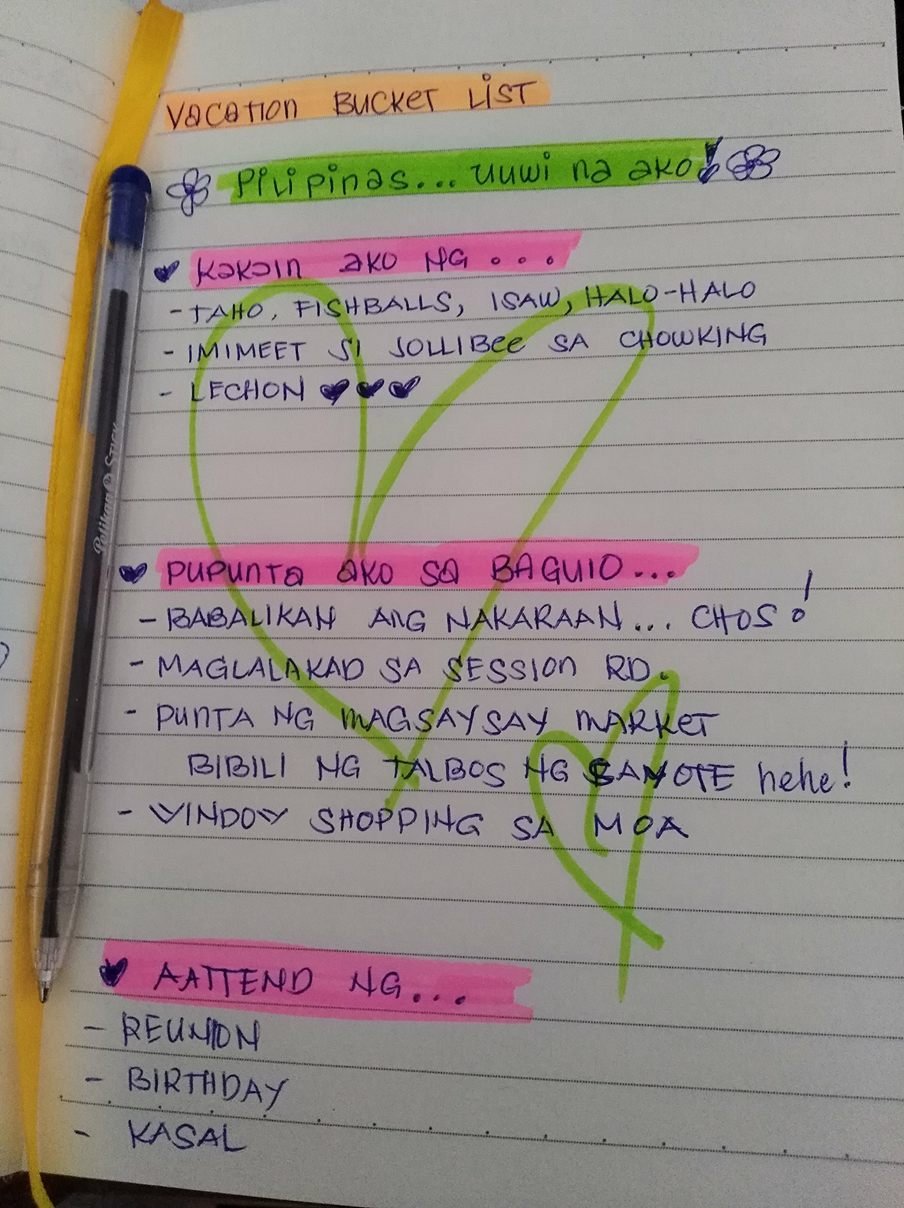 VACATION BUCKET LIST
PILIPINAS... UUWI NA AKO!
KAKAIN AKO NG...
- TAHO, FISHBALLS, ISAW, HALO-HALO
- IMIMEET SI JOLLIBEE SA CHOWKING
- LECHON
PUPUNTA AKO SA BAGUIO...
- BABALIKAN ANG NAKARAAN... CHOS!
- MAGLALAKAD SA SESSION RD.
- PUNTA NG MAGSAYSAY MARKET
BIBILI NG TALBOS NG SAYOTE hehe!
- WINDOW SHOPPING SA MOA
AATTEND NG...
- REUNION
- BIRTHDAY
- KASAL
Pelikan Stick